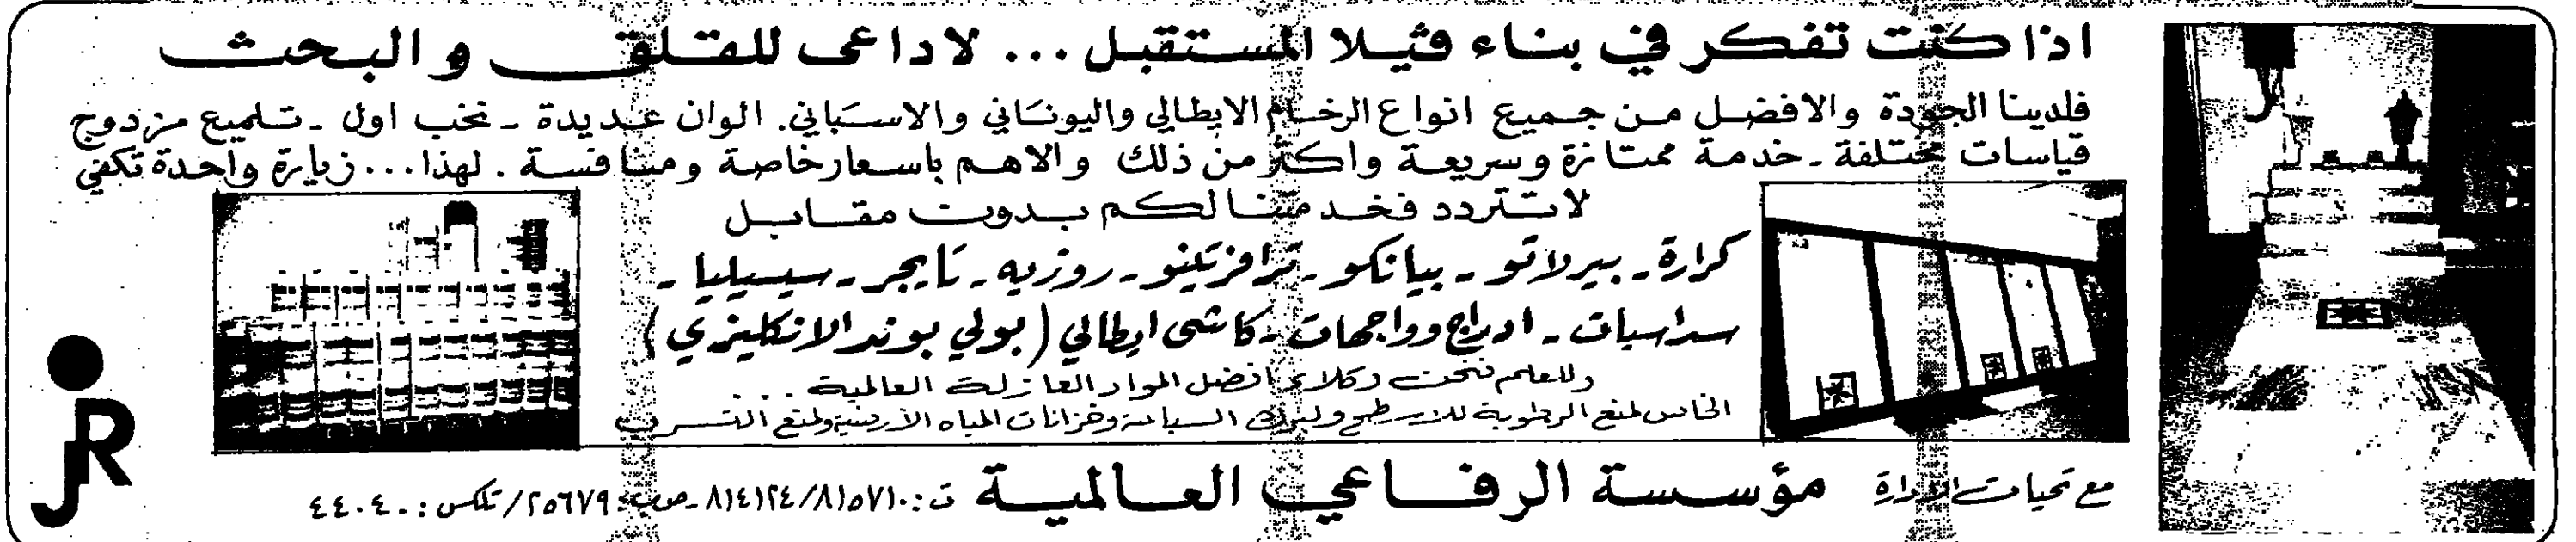 اذا كنت تفكر في بناء ڤيلا المستقبل ... لاداعى للقلق والبحث
فلدينا الجودة والافضل من جميع انواع الرخام الايطالي واليوناني والاسباني. الوان عديدة - نخب اول - تلميع مزدوج
قياسات مختلفة - خدمة ممتازة وسريعة واكثر من ذلك والاهم باسعار خاصة ومنافسة. لهذا... زيارة واحدة تكفي
لاتتردد فخدمتنا لكم بدون مقابل
كرارة - بيرلاتو - بيانكو - ترافرتينو - روزيه - تايجر - سيسيليا -
سداسيات - ادراج وواجهات - كاشى ايطالي (بولي بوند الانكليزي)
وللعلم نحن وكلاء افضل المواد العازلة العالمية ...
الخاص لمنع الرطوبة للاسطح ولبرك السباحة وخزانات المياه الأرضية ولمنع التسرب
مع تحيات الادارة مؤسسة الرفاعي العالمية ت: ٨١٤١٢٤/٨١٥٧١٠ - ص ب: ٢٥٦٧٩/ تلكس: ٤٤٠٤٠
JR